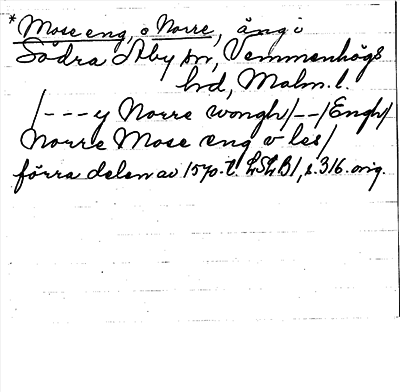 * Mose eng, o Norre, äng i
Södra Åby sn, Vemmenhögs
hd, Malm. l.
/---y Norre wongh/--/Engh/
Norre Mose eng v les/
förra delen av 1570-t. LSLB1, s. 316. orig.